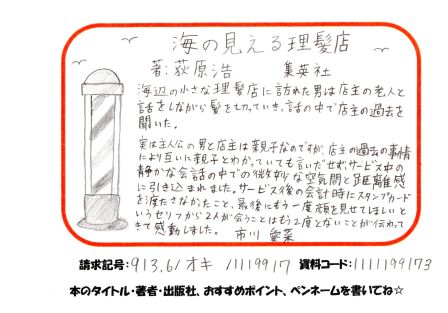 海の見える理髪店
著:荻原浩 集英社
海辺の小さな理髪店に訪れた男は店主の老人と
話をしながら髪を切っていき、話の中で店主の過去を
聞いた。
実は主人公の男と店主は親子なのですが、店主の過去の事情
により互いに親子とわかっていても言いだせず、サービス中の
静かな会話の中での微妙な空気間と距離感
に引き込まれました。サービス後の会計時にスタンプカード
を渡さなかったこと、最後にもう一度顔を見せてほしいと
いうセリフから2人が会うことはもう2度とないことが伝わって
きて感動しました。 市川 愛菜
請求記号:913.6/オキ 11119917 資料コード:1111199173
本のタイトル・著者・出版社、おすすめポイント、ペンネームを書いてね☆